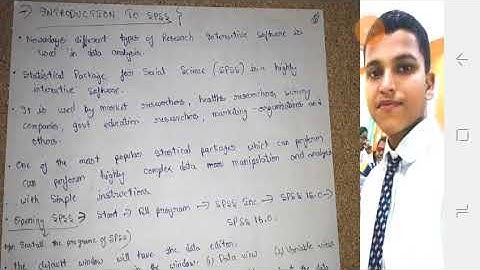 → INTRODUCTION TO SPSS {
• Nowadays different types of Research Interactive Software is
used in data analysis.
• Statistical Package for Social Science (SPSS) is a highly
interactive Software.
• It is used by market researchers, health researchers,
companies, govt education researchers, marketing organisations and
others.
• One of the most popular statistical packages which can perform
can perform highly complex data manipulation and analysis
with simple instructions
• Opening SPSS → Start → All program → SPSS Inc → SPSS 16.0 →
SPSS 16.0.
(Install the programe of SPSS)
The default window will have the data editor.
the window: (1) Data view (2) Variable view
the data